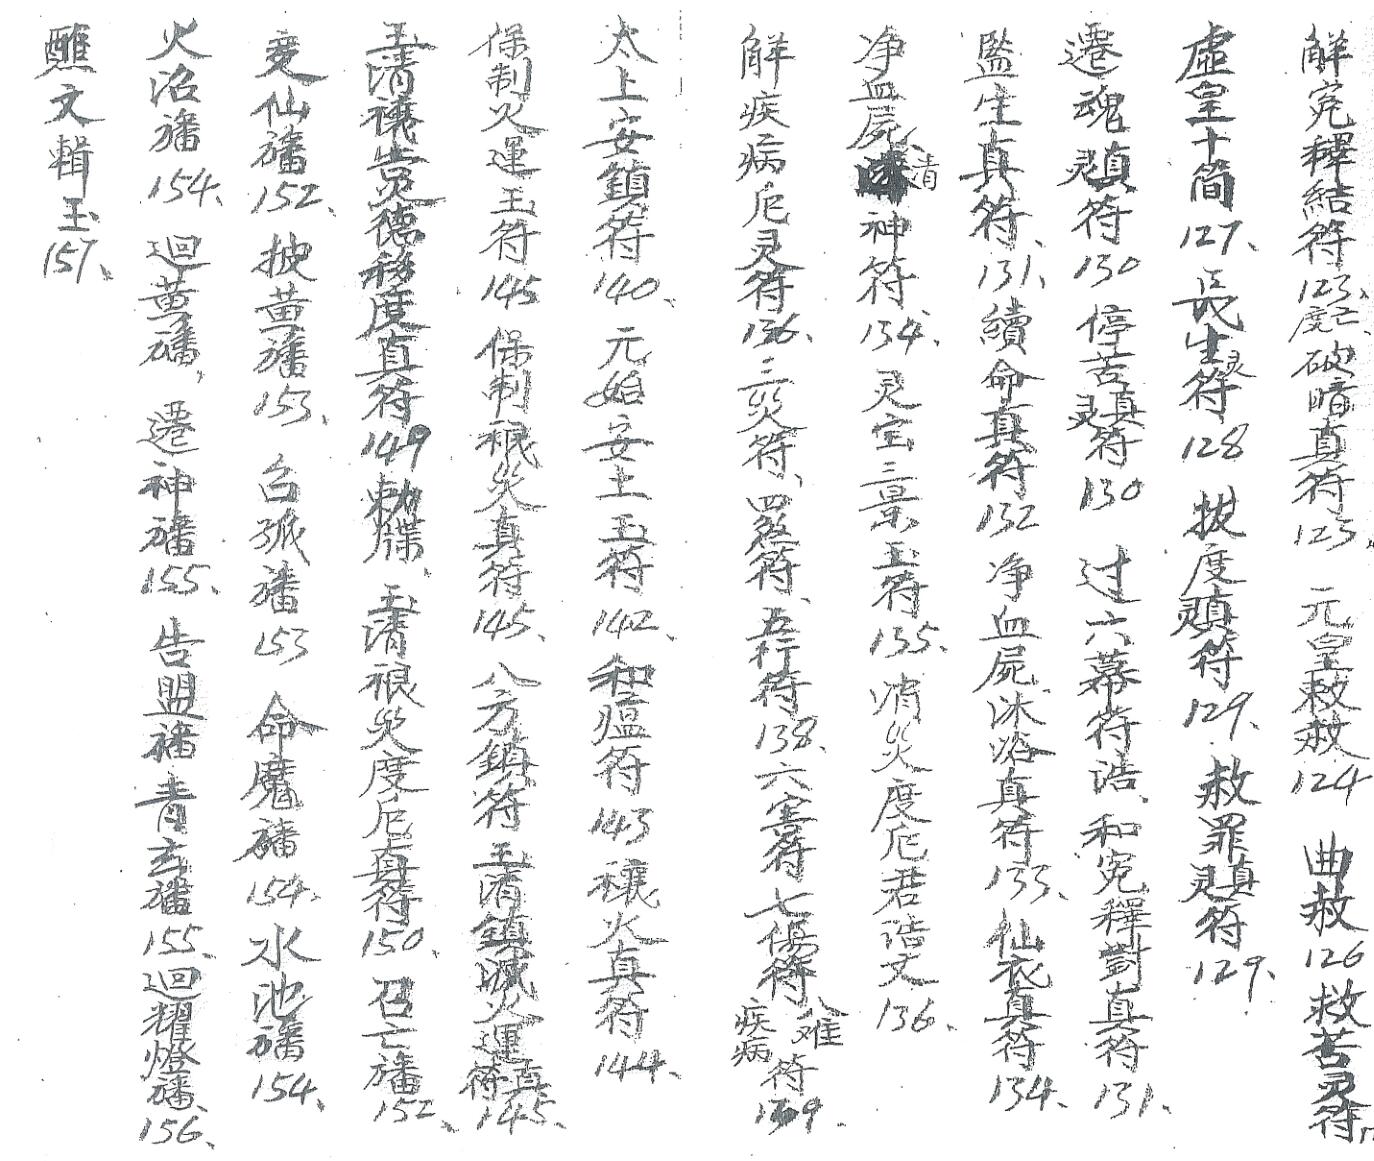 解冤釋結符123、度亡、破暗真符123、元皇敕赦124 曲赦126 救苦灵符
虛皇十简127、長生灵符128 拔度灵真符129、赦罪灵真符129、
遷魂灵真符130 停苦灵真符130 过六幕符诰、和冤釋對真符131、
監生真符、131、續命真符132 净血屍沐浴真符133、仙衣真符134、
净血屍清神符134、灵宝三景玉符135、消灾度厄君诰文136、
解疾病厄灵符136、三灾符、四煞符、五行符138、六害符七傷符八难疾病符139、
太上安鎮符140、元始安土玉符142、和瘟符143 禳火真符144、
保制火運玉符145 保制祲灾真符145、八方鎮符玉清鎮滅火運真符145、
玉清禳告灵德移度真符149勅牒、玉清祲灾度厄真符150、召亡旛152、
变仙旛152、披黄旛153、台孤旛153 命魔旛154、水池旛154、
火沼旛154、迴黄旛、遷神旛155、告盟旛青玄旛155、迴耀燈旛、156、
醮文輯玉157、